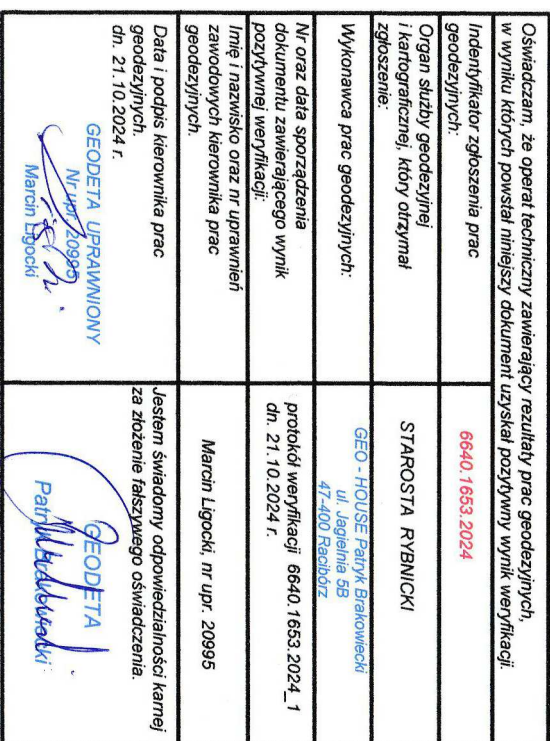 Oświadczam, że operat techniczny zawierający rezultaty prac geodezyjnych,
w wyniku których powstał niniejszy dokument uzyskał pozytywny wynik weryfikacji.
Indentyfikator zgłoszenia prac
geodezyjnych:
6640.1653.2024
Organ służby geodezyjnej
i kartograficznej, który otrzymał
zgłoszenie:
STAROSTA RYBNICKI
Wykonawca prac geodezyjnych:
GEO - HOUSE Patryk Brakowiecki
ul. Jagielnia 5B
47-400 Racibórz
Nr oraz data sporządzenia
dokumentu zawierającego wynik
pozytywnej weryfikacji:
protokół weryfikacji 6640.1653.2024_1
dn. 21.10.2024 r.
Imię i nazwisko oraz nr uprawnień
zawodowych kierownika prac
geodezyjnych.
Marcin Ligocki, nr upr. 20995
Data i podpis kierownika prac
geodezyjnych.
dn. 21.10.2024 r.
GEODETA UPRAWNIONY
Nr upr. 20995
Marcin Ligocki
Jestem świadomy odpowiedzialności karnej
za złożenie fałszywego oświadczenia.
GEODETA
Patryk Brakowiecki